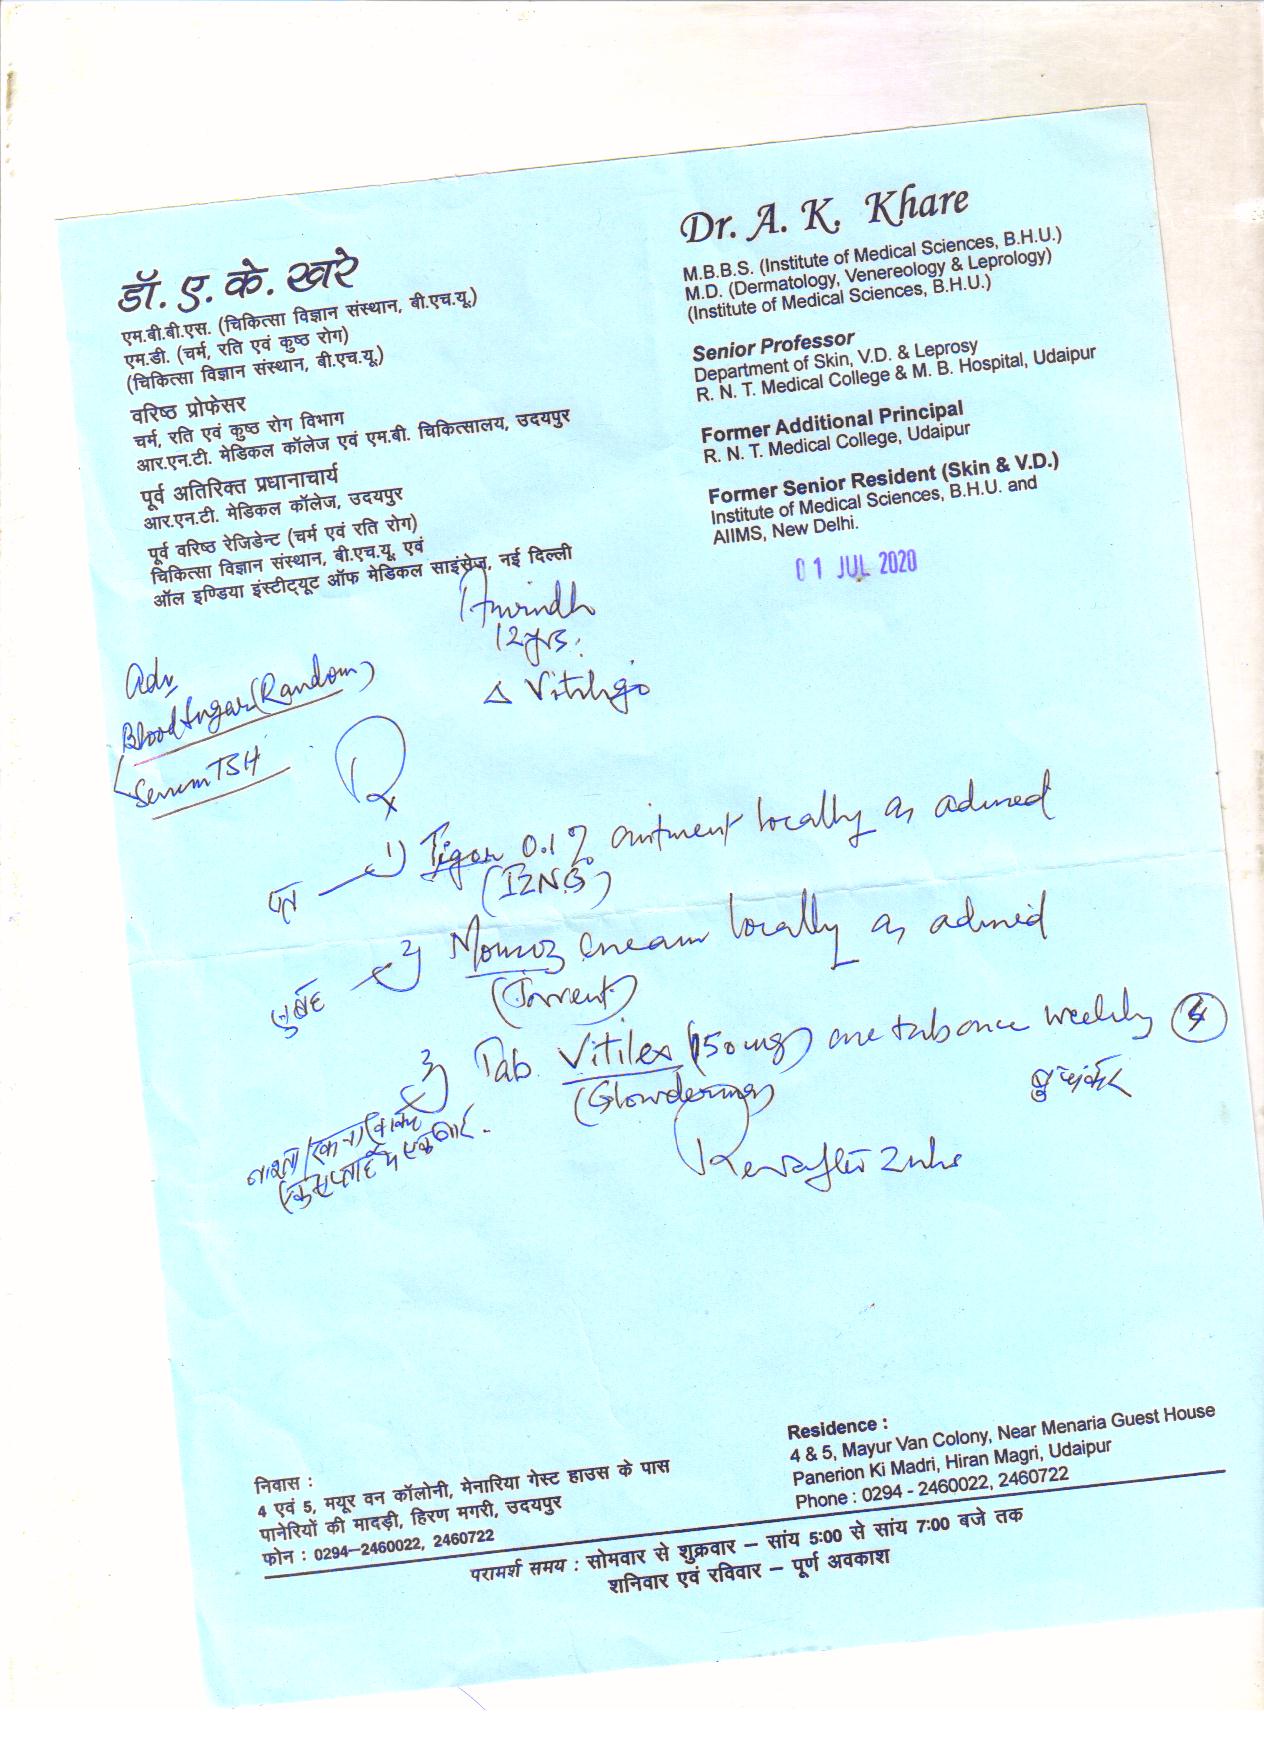 डॉ. ए. के. खरे
एम.बी.बी.एस. (चिकित्सा विज्ञान संस्थान, बी.एच.यू.)
एम.डी. (चर्म, रति एवं कुष्ठ रोग)
(चिकित्सा विज्ञान संस्थान, बी.एच.यू.)
वरिष्ठ प्रोफेसर
चर्म, रति एवं कुष्ठ रोग विभाग
आर.एन.टी. मेडिकल कॉलेज एवं एम.बी. चिकित्सालय, उदयपुर
पूर्व अतिरिक्त प्रधानाचार्य
आर.एन.टी. मेडिकल कॉलेज, उदयपुर
पूर्व वरिष्ठ रेजिडेन्ट (चर्म एवं रति रोग)
चिकित्सा विज्ञान संस्थान, बी.एच.यू. एवं
ऑल इण्डिया इंस्टीट्यूट ऑफ मेडिकल साइंसेज, नई दिल्ली
Dr. A. K. Khare
M.B.B.S. (Institute of Medical Sciences, B.H.U.)
M.D. (Dermatology, Venereology & Leprology)
(Institute of Medical Sciences, B.H.U.)
Senior Professor
Department of Skin, V.D. & Leprosy
R. N. T. Medical College & M. B. Hospital, Udaipur
Former Additional Principal
R. N. T. Medical College, Udaipur
Former Senior Resident (Skin & V.D.)
Institute of Medical Sciences, B.H.U. and
AIIMS, New Delhi.
01 JUL 2020
12 yrs.
Δ Vitiligo
Adv
Blood Sugar (Random)
Serum TSH
Rx
1) 0.1% ointment locally as advised
2) Momoz cream locally as advised
(Torrent)
3) Tab. Vitilex (150mg) one tab once weekly
(Glowderma)
Rev after 2 mths
निवास :
4 एवं 5, मयूर वन कॉलोनी, मेनारिया गेस्ट हाउस के पास
पानेरियों की मादड़ी, हिरण मगरी, उदयपुर
फोन : 0294-2460022, 2460722
Residence :
4 & 5, Mayur Van Colony, Near Menaria Guest House
Panerion Ki Madri, Hiran Magri, Udaipur
Phone : 0294 - 2460022, 2460722
परामर्श समय : सोमवार से शुक्रवार – सांय 5:00 से सांय 7:00 बजे तक
शनिवार एवं रविवार – पूर्ण अवकाश